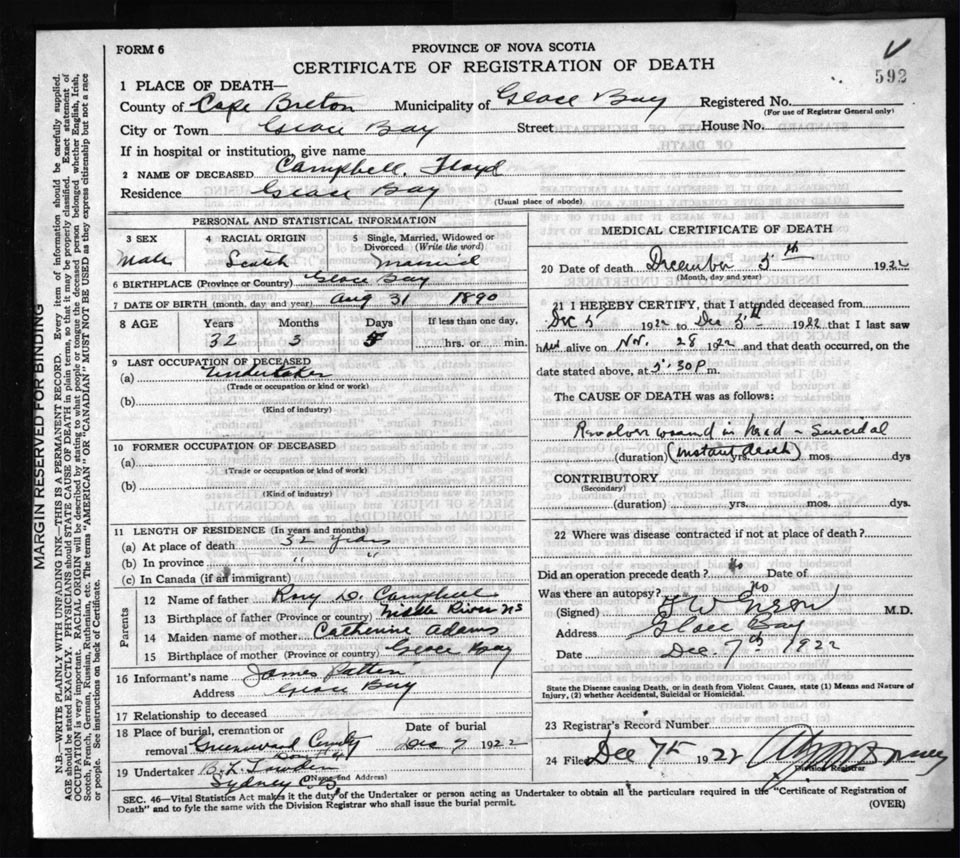 FORM 6
PROVINCE OF NOVA SCOTIA
CERTIFICATE OF REGISTRATION OF DEATH
592
1 PLACE OF DEATH—
County of Cape Breton Municipality of Glace Bay Registered No.
(For use of Registrar General only)
City or Town Glace Bay Street House No.
If in hospital or institution, give name
2 NAME OF DECEASED Campbell, Floyd
Residence Glace Bay
(Usual place of abode)
PERSONAL AND STATISTICAL INFORMATION
3 SEX
Male
4 RACIAL ORIGIN
Scotch
5 Single, Married, Widowed or Divorced (Write the word)
Married
6 BIRTHPLACE (Province or Country) Glace Bay
7 DATE OF BIRTH (month, day and year) Aug 31 1890
8 AGE Years Months Days If less than one day,
32 3 5 hrs. or min.
9 LAST OCCUPATION OF DECEASED
(a) Undertaker
(Trade or occupation or kind or work)
(b)
(Kind of industry)
10 FORMER OCCUPATION OF DECEASED
(a)
(Trade or occupation or kind of work)
(b)
(Kind of industry)
11 LENGTH OF RESIDENCE (In years and months)
(a) At place of death 32 years
(b) In province " "
(c) In Canada (if an immigrant)
Parents
12 Name of father Rory D. Campbell
13 Birthplace of father (Province or country) Middle River NS
14 Maiden name of mother Catherine Adams
15 Birthplace of mother (Province or country) Glace Bay
16 Informant's name James Patten
Address Glace Bay
17 Relationship to deceased
18 Place of burial, cremation or removal Greenwood
Date of burial
Dec 7 1922
19 Undertaker B. L.
(Name and Address)
Sydney C.B.
MEDICAL CERTIFICATE OF DEATH
20 Date of death December 5th 1922
(Month, day and year)
21 I HEREBY CERTIFY, that I attended deceased from
Dec 5 1922 to Dec 5th 1922 that I last saw
him alive on Nov. 28 1922 and that death occurred, on the
date stated above, at 5:30 P m.
The CAUSE OF DEATH was as follows:
Revolver wound in head - Suicidal
(duration) (instant death) mos. dys
CONTRIBUTORY
(Secondary)
(duration) yrs. mos. dys.
22 Where was disease contracted if not at place of death?
Did an operation precede death? No Date of
Was there an autopsy? No
(Signed) M.D.
Address Glace Bay
Date Dec. 7th 1922
State the Disease causing Death, or in death from Violent Causes, state (1) Means and Nature of
Injury, (2) whether Accidental, Suicidal or Homicidal.
23 Registrar's Record Number
24 Filed Dec 7th 1922
Division Registrar
SEC. 46—Vital Statistics Act makes it the duty of the Undertaker or person acting as Undertaker to obtain all the particulars required in the "Certificate of Registration of
Death" and to fyle the same with the Division Registrar who shall issue the burial permit.
(OVER)
MARGIN RESERVED FOR BINDING
N.B.—WRITE PLAINLY, WITH UNFADING INK—THIS IS A PERMANENT RECORD. Every item of information should be carefully supplied.
AGE should be stated EXACTLY. PHYSICIANS should STATE CAUSE OF DEATH in plain terms, so that it may be properly classified. Exact statement of
OCCUPATION is very important. RACIAL ORIGIN will be described by stating to what people or tongue the deceased person belonged whether English, Irish,
Scotch, French, German, Russian, Ruthenian, etc. The terms "AMERICAN" or "CANADIAN" MUST NOT BE USED as they express citizenship but not a race
or people. See instructions on back of Certificate.